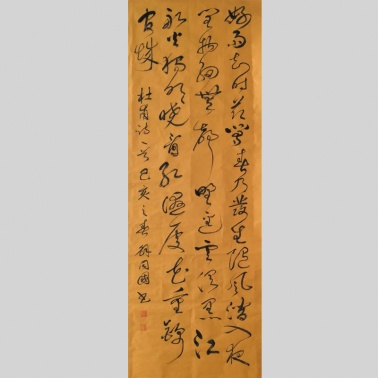 好雨知时节當春乃發生随風潛入夜
润物細無聲野徑雲俱黑江
船火獨明曉看紅濕處花重錦
官城 杜甫诗一首己亥之春同國书